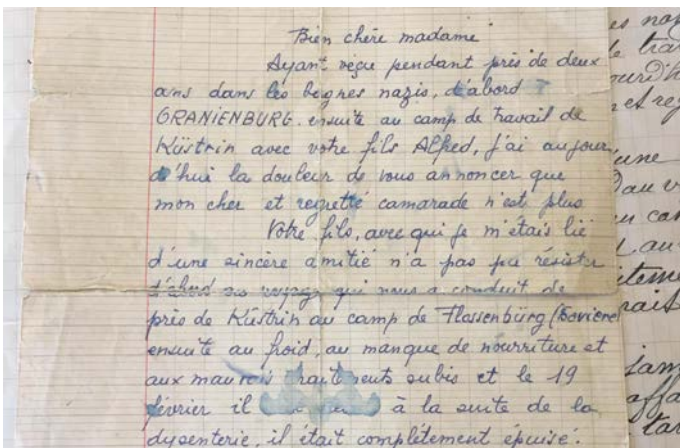 Bien chère madame
Ayant véçu pendant près de deux
ans dans les bagnes nazis, d'abord
GRANIENBURG, ensuite au camp de travail de
Küstrin avec votre fils Alfred, j'ai aujour
d'hui la douleur de vous annoncer que
mon cher et regretté camarade n'est plus
Votre fils, avec qui je m'étais lié
d'une sincère amitié n'a pas pu résister
d'abord au voyage qui nous a conduit de
près de Küstrin au camp de Flossenbürg (Bavière)
ensuite au froid, au manque de nourriture et
aux mauvais traitements subis et le 19
février il à la suite de la
dysenterie, il était complètement épuisé.
une
au
jam
affa